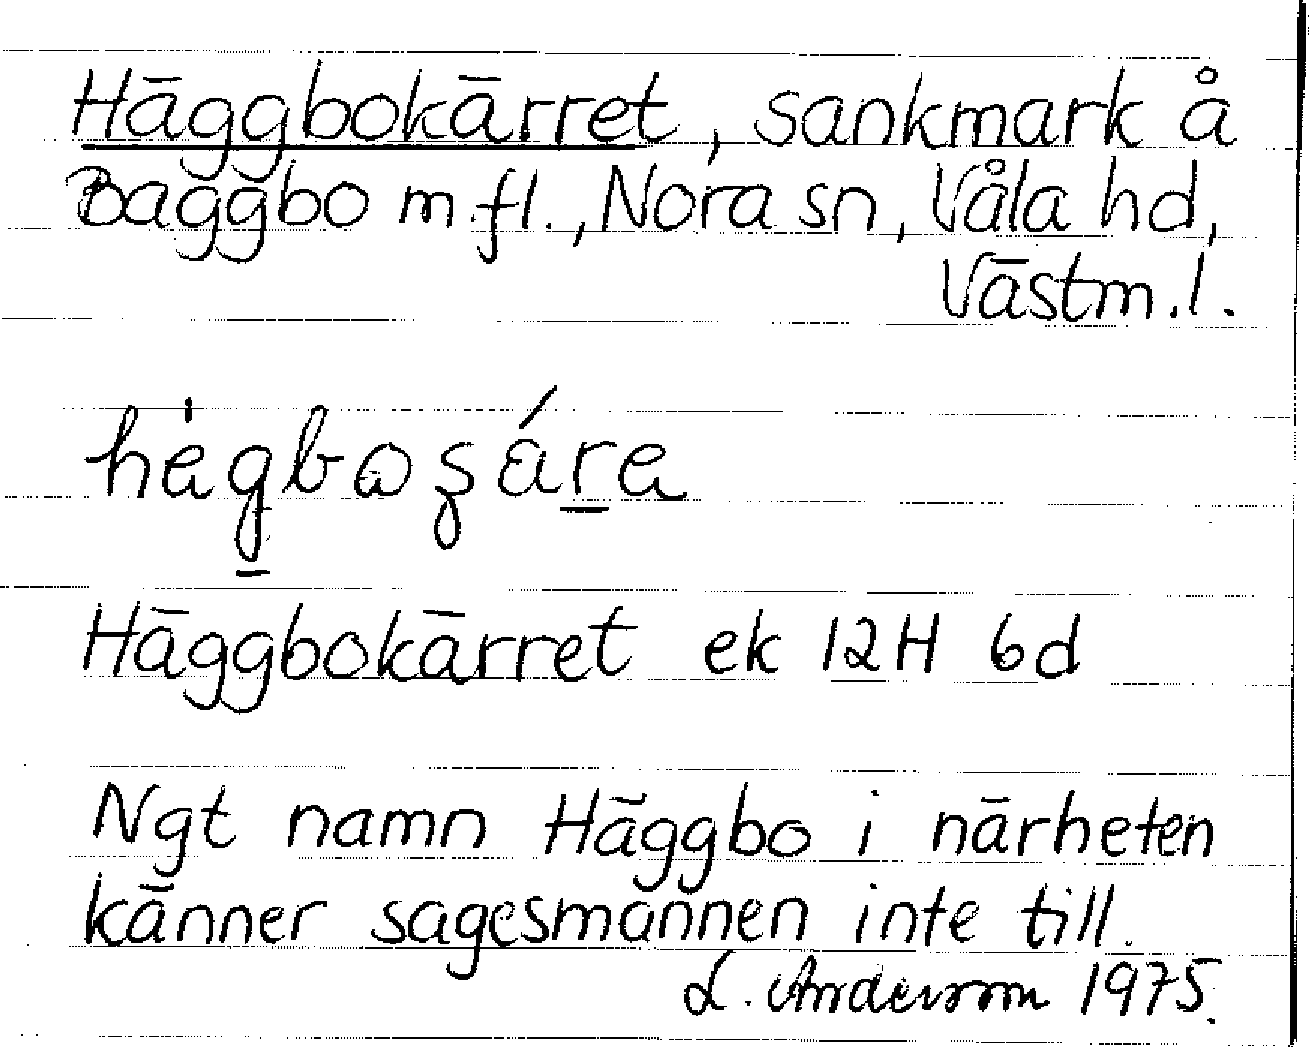 Häggbokärret, sankmark å
Baggbo m.fl., Nora sn, Våla hd,
Västm.l.
Häggbokärret ek 12H 6d
Ngt namn Häggbo i närheten
känner sagesmännen inte till.
L. Andersson 1975.